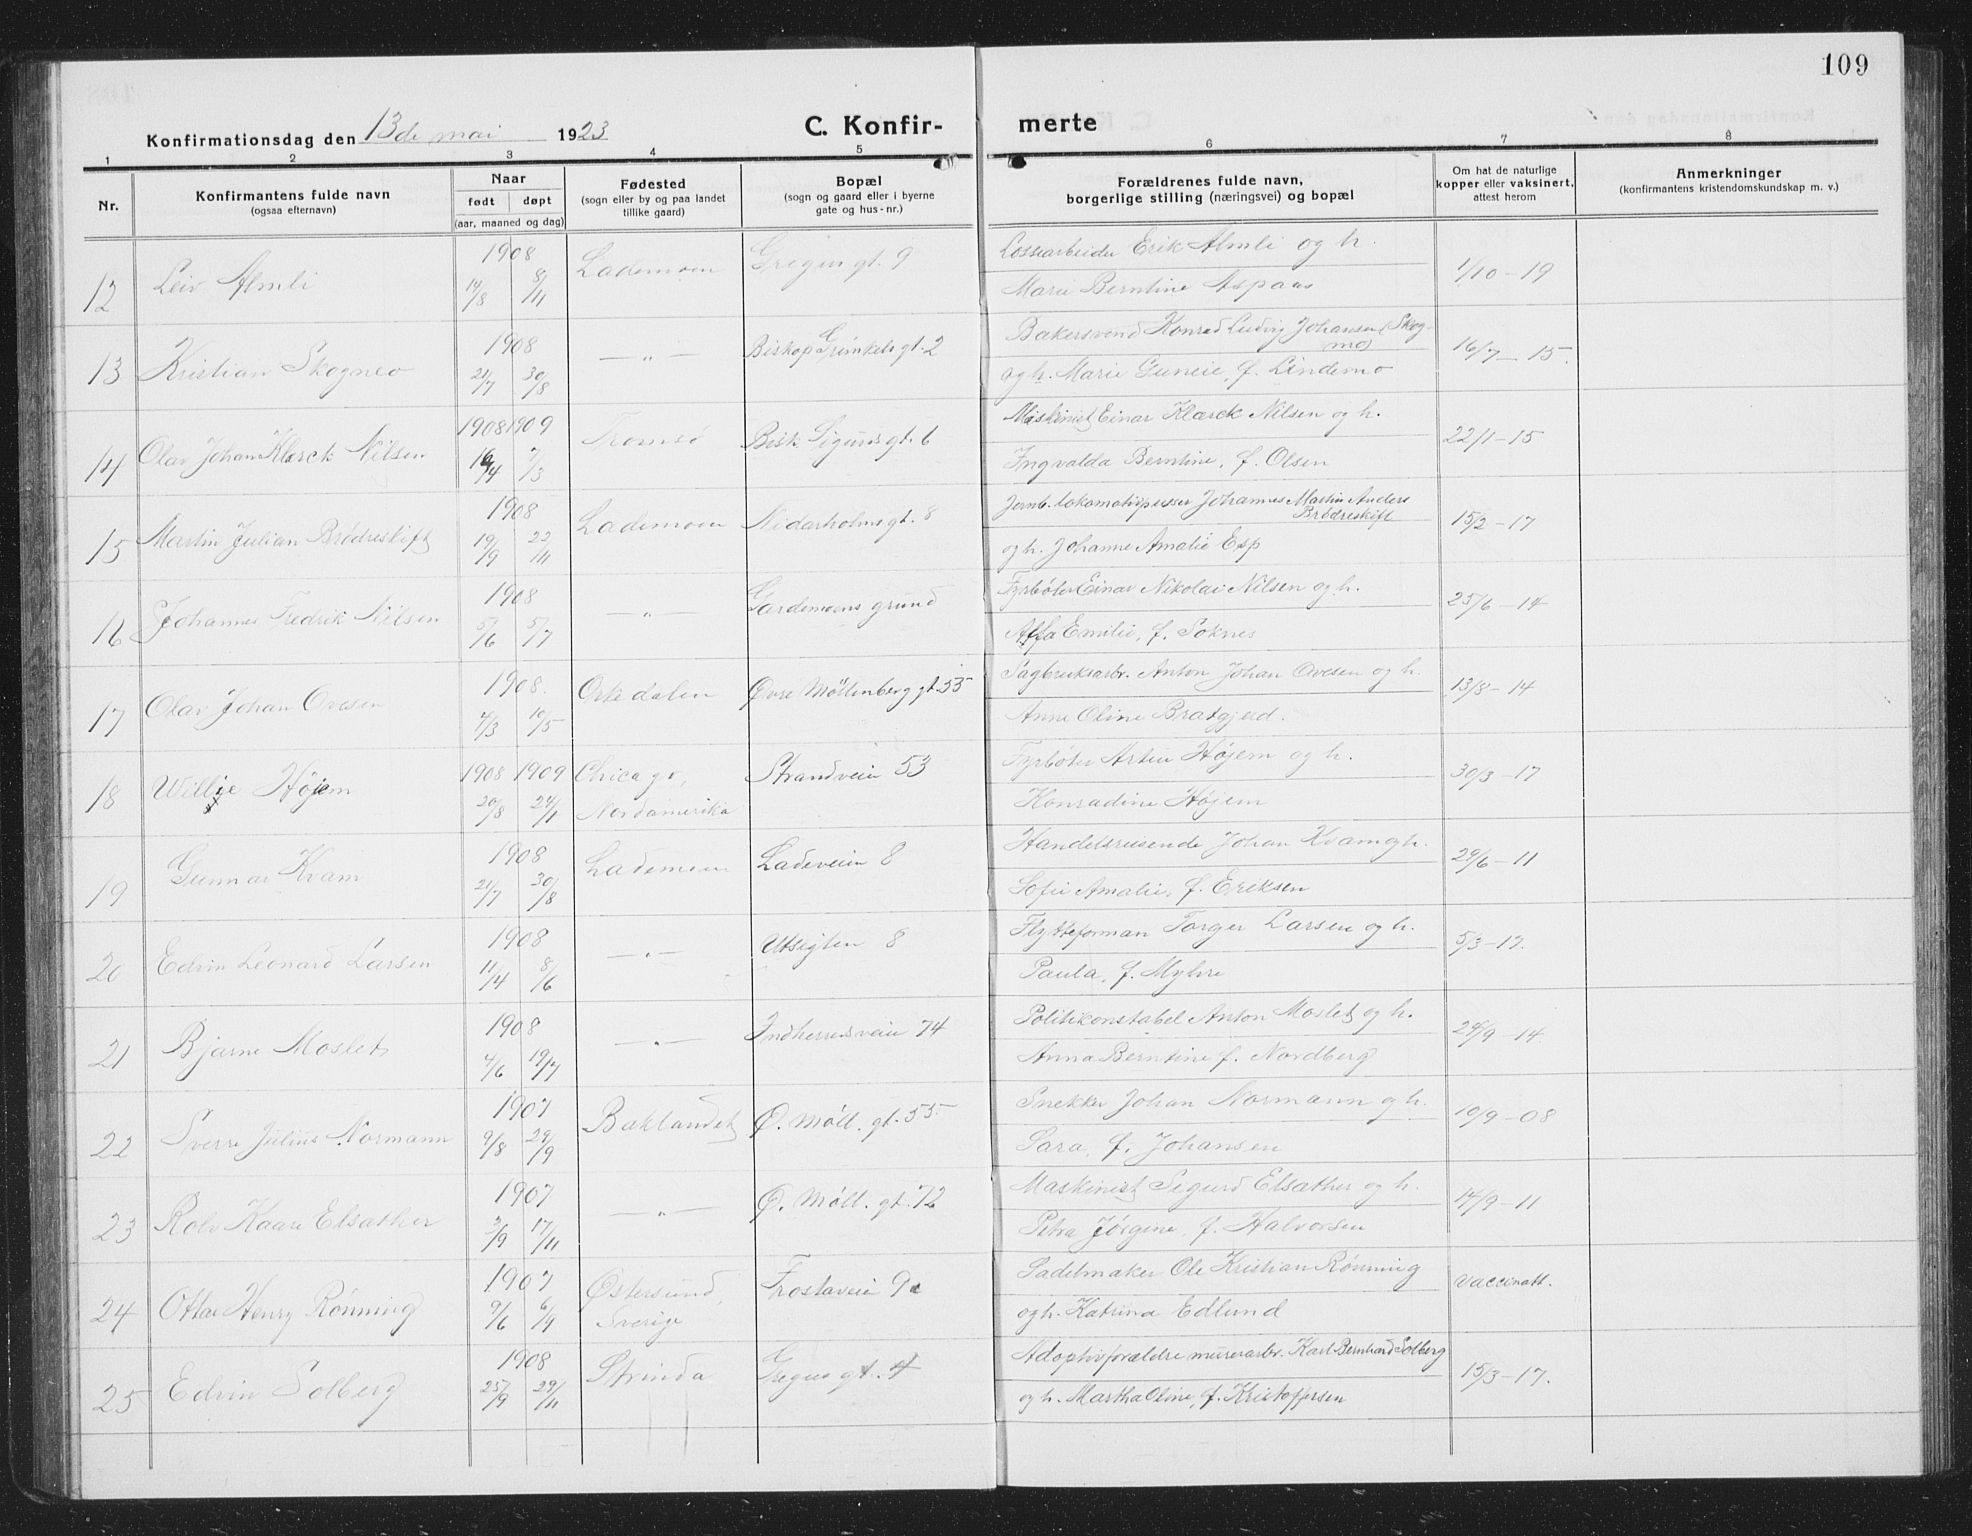 109
Konfirmationsdag den 13de mai 1923 C. Konfir- merte
1 2 3 4 5 6 7 8
Nr.
Konfirmantens fulde navn
(ogsaa efternavn)
Naar
født døpt
(aar, maaned og dag)
Fødested
(sogn eller by og paa landet
tillike gaard)
Bopæl
(sogn og gaard eller i byerne
gate og hus-nr.)
Forældrenes fulde navn,
borgerlige stilling (næringsvei) og bopæl
Om hat de naturlige
kopper eller vaksinert,
attest herom
Anmerkninger
(konfirmantens kristendomskundskap m. v.)
12 Leiv Almli 1908 14/8 8/11 Lademoen gt. 9 Lossearbeider Erik Almli og h.
Marie Berntine Aspaas 1/10-19
13 Kristian Skogmo 1908 21/7 30/8 —„— Biskop Grimkels gt. 2 Bakersvend Konrad Ludvig Johansen (Skog-
mo)
og h. Marie f. Lindemo 16/7-15.
14 Olav Johan Klærck Nilsen 1908 1909 16/4 7/3 Tromsø Bisk Sigurds gt. 6 Maskinist Einar Klærck Nilsen og h.
Ingvalda Berntine, f. Olsen 22/1-15
15 Martin Julian Brödreskift 1908 19/9 22/11 Lademoen Nidarholms gt. 8 Jernb. lokomotivpusser Johannes Martin Anders
Brödreskift
og h. Johanne Amalie Esp 15/2-17
16 Johannes Fredrik Nilsen 1908 5/6 5/7 —„— Gardemoens grund Fyrbøter Einar Nikolai Nilsen og h.
Alfa Emilie, f. Soknes 25/6-14
17 Olav Johan Ovesen 1908. 4/3 10/5 Orkedalen Øvre Møllenberg gt. 55 Sagbruksarbr. Anton Johan Ovesen og h.
Anne Oline Bratgjerd. 13/8-14
18 Willie Höjem 1908 1909 20/8 24/1 Chicago,
Nordamerika Strandveien 53 Fyrbøter Artur Höjem og h.
Konradine Höjem 30/3-17
19 Gunnar Kvam 1908 21/7 30/8 Lademoen Ladeveien 8 Handelsreisende Johan Kvam og h.
Sofie Amalie, f. Eriksen 29/6-11
20 Edvin Leonard Larsen 1908 11/4 8/6 —„— Utsigten 8 Flytteforman Torger Larsen og h.
Paula, f. Myhre 5/3-17.
21 Bjarne Moslet 1908 4/6 19/7 —„— Indherredsveien 74 Politikonstabel Anton Moslet og h.
Anna Berntine f. Nordberg 24/9-14.
22 Sverre Julius Normann 1907 9/8 29/9 Baklandet Ø. Møll. gt. 55 Snekker Johan Normann og h.
Sara, f. Johansen 10/9-08
23 Rolv Kaare Elsæther 1907 3/9 17/11 —„— Ø. Møll. gt. 72 Maskinist Sigurd Elsæther og h.
Petra Jørgine, f. Halvorsen 14/9-11
24 Ottar Henry Rønning 1907 9/6 Østersund,
Sverige Frostaveien 9 Sadelmaker Ole Kristian Rønning
og h. Katrina Edlund vaccinatt.
25 Edvin Solberg 1908 25/9 29/11 Strinda gt. 4 Adoptivforældre murerarbr. Karl Bernhard Solberg
og h. Martha Oline, f. Kristoffersen 15/3-17.